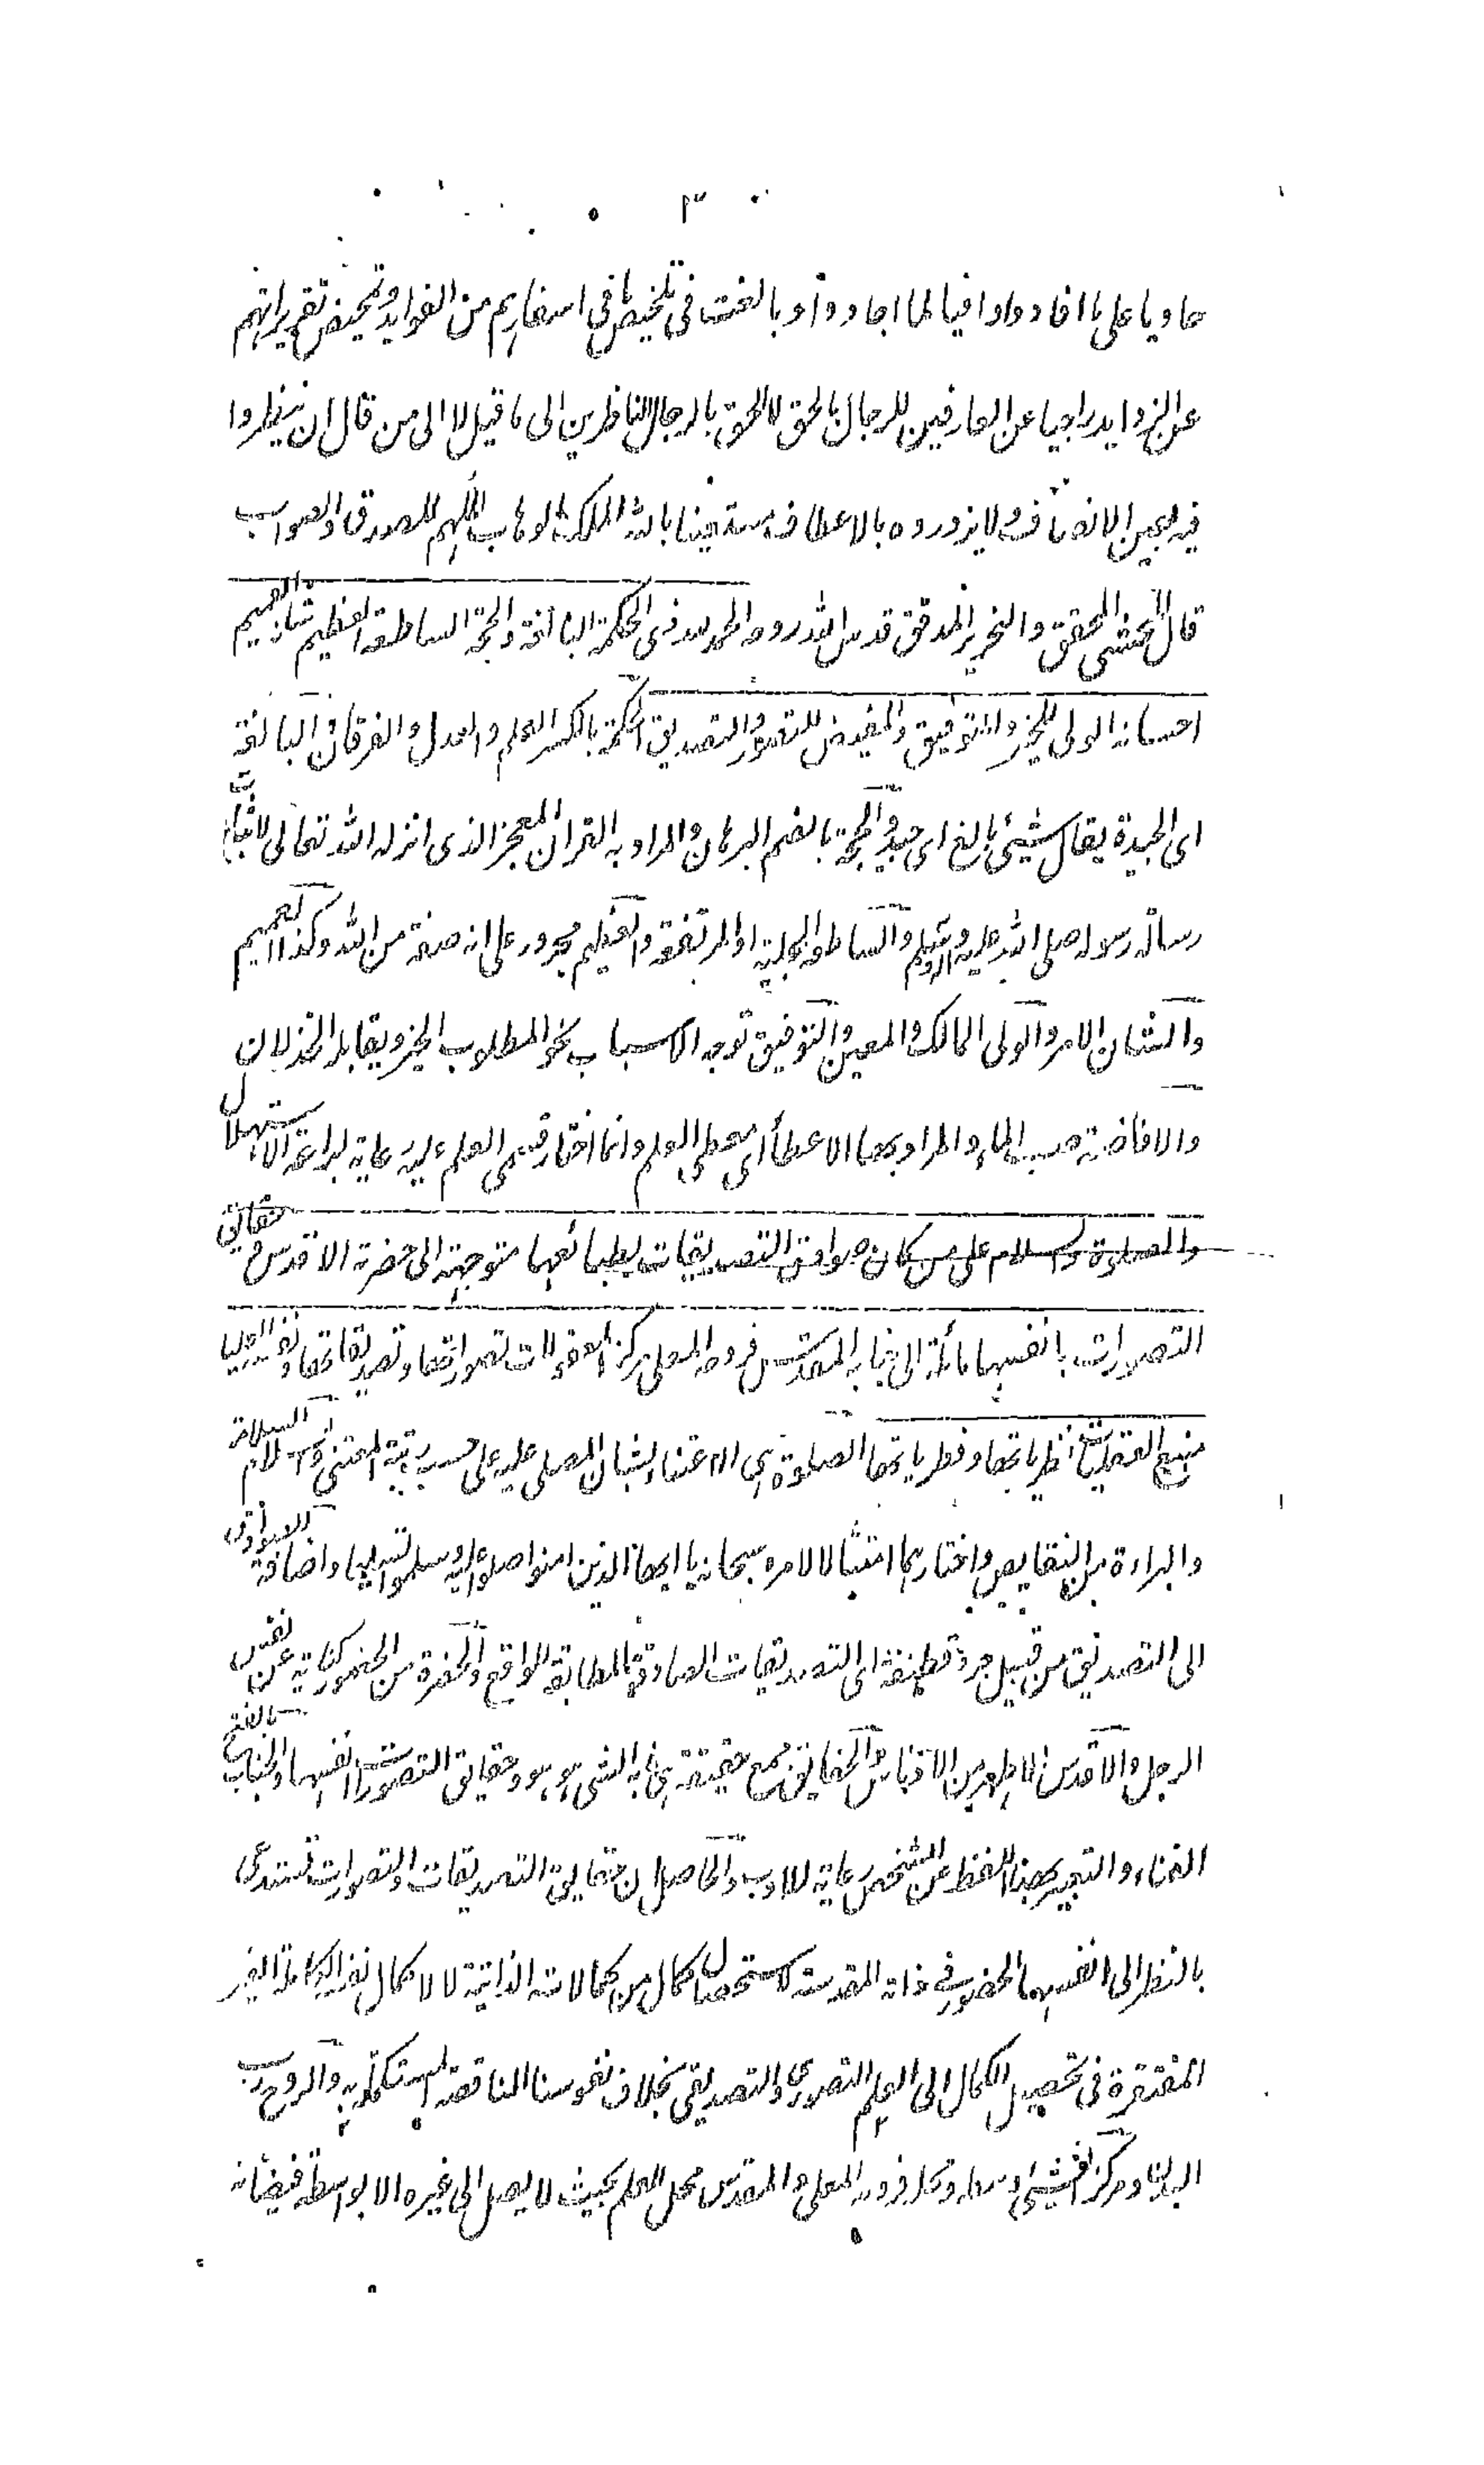 ٣
حاويا على ما افادوا وافيا لما اجادوا وبالغت في تلخيص ما في اسفارهم من الفوايد وتمحيص تقريراتهم
عن الزوايد راجيا عن العارفين للرجال بالحق لا الحق بالرجال الناظرين الى ما قيل لا الى من قال ان ينظروا
فيه بعين الانصاف ولا يزوروه بالاعطاف مستعينا بالله الملك الوهاب الملهم للصدق والصواب
قال المحشى المحقق والنحرير المدقق قدس الله روحه الحمد لله ذى الحكمة البالغة والحجة الساطعة العظيم شانه العميم
احسانه المولى للخير والتوفيق والمفيض للتصور والتصديق الحكمة بالكسر العلم والعدل والفرقان والبالغة
اى الجيدة يقال شيئ بالغ اى جيد والحجة بالضم البرهان والمراد به القران المعجز الذى انزله الله تعالى لاثبات
رسالة رسوله صلى الله عليه واله وسلم والساطعة الجلية او المرتفعة والعظيم مجرور على انه صفة من الله وكذا العميم
والشان الامر والمولى المالك والمعين والتوفيق توجه الاسباب نحو المطلوب الخير ويقابله الخذلان
والافاضة صب الماء والمراد بها الاعطأ اى معطى العلم وانما اختار قسمى العلم عليه رعاية لبراعة الاستهلال
والصلوة والسلام على من كان صوادق التصديقات بطبائعها متوجهة الى حضرته الاقدس وحقائق
التصورات بانفسها مائلة الى جنابه المقدس فروحه المعلى مركز المعقولات تصوراتها وتصديقاتها ونفسه العليا
منبع العقليات نظرياتها وفطرياتها الصلوة هى الاعتناء بشان المصلى عليه على حسب رتبة المعتنى والسلام السلامة
والبراءة من النقايص واختارهما امتثالا لامره سبحانه يا ايها الذين امنوا صلوا عليه وسلموا تسليما واضافة الصوادق
الى التصديق من قبيل جرد قطيفة اى التصديقات الصادقة المطابقة للواقع والحضرة من الحضور كناية عن نفس
الرجل والاقدس الاطهر من الادناس والحقايق جمع حقيقة هى ما به الشى هو هو وحقايق التصورات انفسها والجناب بالفتح
الفناء والتعبير بهذا اللفظ عن الشخص رعاية للادب والحاصل ان حقايق التصديقات والتصورات تستدعى
بالنظر الى انفسها الحضور فى ذاته المقدسة لاستحصال كمال من كمالاته الذاتية لا لاكمال نفسه الكاملة الغير
المفتقرة فى تحصيل الكمال الى العلم التصورى والتصديقى بخلاف نفوسنا الناقصة المستكملة به والروح رب
البدن ومركز الشيئ وسطه ومحله فروحه المعلى والمقدس محل العلم بحيث لا يصل الى غيره الا بواسطة فيضانه